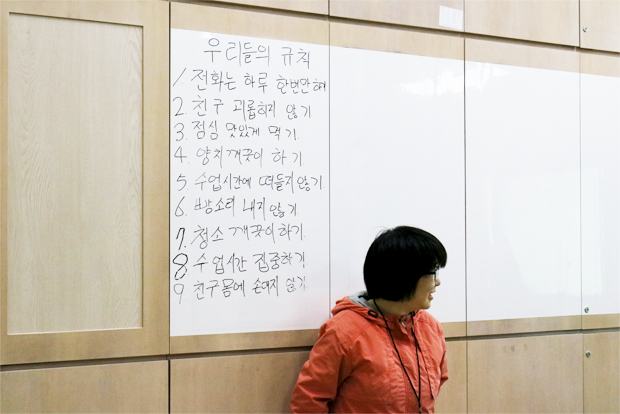 우리들의 규칙
1 전화는 하루 한번만 하기
2. 친구 괴롭히지 않기
3. 점심 맛있게 먹기.
4. 양치 깨끗이 하기
5. 수업시간에 떠들지 않기.
6. 빵소리 내지 않기
7. 청소 깨끗이 하기.
8. 수업시간 집중하기
9 친구 몸에 손대지 않기